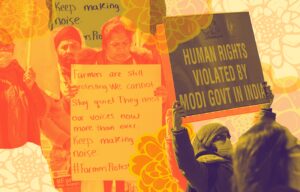 Keeps making
noise
Farmers are still
protesting We cannot
Stay quiet They need
our voices now
more than ever
Keeps making
noise
HUMAN RIGHTS
VIOLATED BY
MODI GOVT IN INDIA